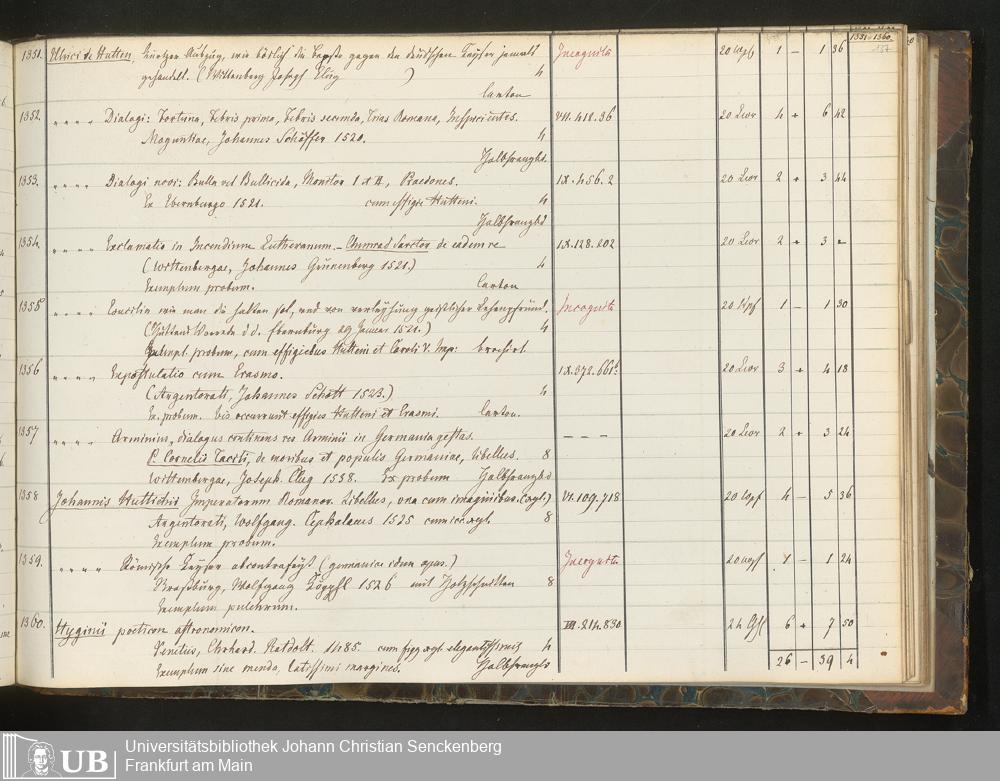 1351–1360.
137
1351. Ulrici de Hutten, Kurtzer Auszug, wie böslich die Bepste gegen den deudschen Keyser jemals Incognita 20 Wgf 1 – 1 36
gehandelt. (Wittenberg Joseph Clug ) 4
Carton
1352. " " " " Dialogi: Fortuna, Febris prima, Febris secunda, Trias Romana, Inspicientes. VII. 418. 36 20 Leor 4 + 6 42
Moguntiae, Johannes Schöffer 1520. 4
Halbfranzbd.
1353. " " " " Dialogi novi: Bulla vel Bullicida, Monitor I et II, Praedones. IX. 456. 2 20 Leor 2 + 3 44
Ex Ebernburgo 1521. cum effigie Hutteni. 4
Halbfranzbd
1354. " " " " Exclamatio in Incendium Lutheranum. – Chunrad Sarctor de eadem re IX. 128. 202 20 Leor 2 + 3
(Wittenbergae, Johannes Grunenberg 1521.) 4
Exemplum probum. Carton
1355 " " " " Concilia wie man die halten sol, und von verleyhung geistlicher Lehenpfründ. Incognita 20 1 – 1 30
(Huttens Vorrede d. d. Ebernburg 29 Januar 1521.) 4
Exempl. probum, cum effigiebus Hutteni et Caroli V. Imp: brochirt.
1356 " " " " Expostulatio cum Erasmo. IX. 372. 661b. 20 Leor 3 + 4 18
(Argentorati, Johannes Schott 1523.) 4
Ex. probum. bis occurrunt effigies Hutteni et Erasmi. Carton.
1357 " " " " Arminius, dialogus continens res Arminii in Germania gestas. – – – 20 Leor 2 + 3 24
P. Cornelii Taciti, de moribus et populis Germaniae, libellus. 8
Wittembergae, Joseph. Clug 1538. Ex probum Halbfranzbd
1358 Johannis Huttichii Imperatorum Romanor. Libellus, una cum imaginibus. (xyl.) VI. 109. 718 20 Wgf 4 – 5 36
Argentorati, Wolfgang. Cephalaeus 1525 cum icc. xyl. 8
Exemplum probum.
1359. " " " " Römische Keyser abcontrafeyt (germanice idem opus.) Incognita 20 Wgf 1 – 1 24
Strassburg, Wolfgang Köpphl 1526 mit Holzschnitten 8
Exemplum pulchrum.
1360. Hyginii poeticon astronomicon. III. 214. 830 24 6 + 7 50
Venetiis, Erhard. Ratdolt. 1485. cum figg. xyl. elegantissimis 4
Exemplum sine menda, latissimi margines. Halbfranzbd
26 – 39 4
UB
Universitätsbibliothek Johann Christian Senckenberg
Frankfurt am Main